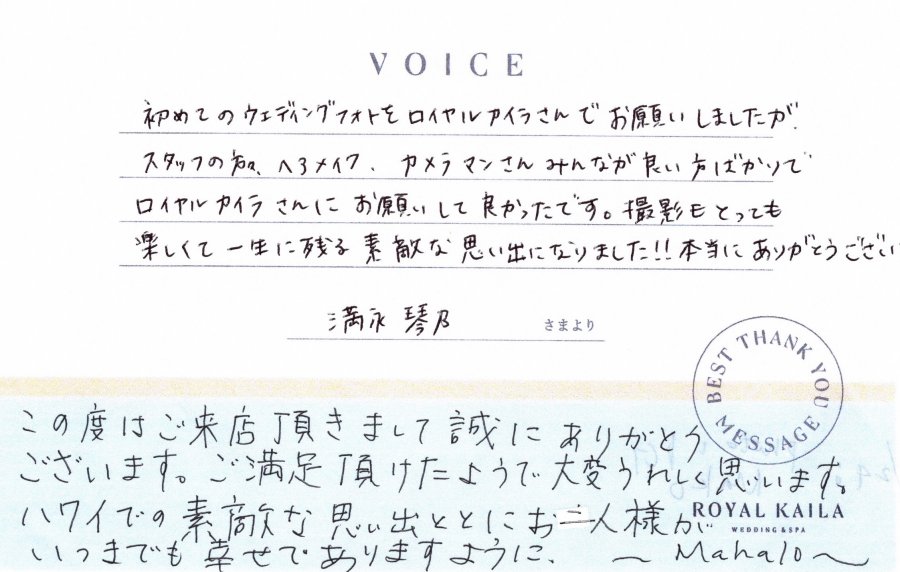 VOICE
初めてのウェディングフォトをロイヤルカイラさんでお願いしましたが、
スタッフの方々、ヘアメイク、カメラマンさんみんなが良い方ばかりで
ロイヤルカイラさんにお願いして良かったです。撮影もとっても
楽しくて一生に残る素敵な思い出になりました!!本当にありがとうござい
満永 琴乃 さまより
BEST THANK YOU MESSAGE
ROYAL KAILA
WEDDING & SPA
この度はご来店頂きまして誠にありがとう
ございます。ご満足頂けたようで大変うれしく思います。
ハワイでの素敵な思い出とともにお二人様が
いつまでも幸せでありますように、 〜Mahalo〜